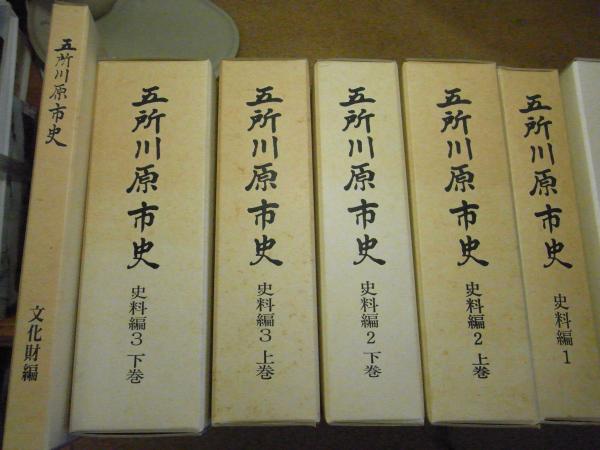 五所川原市史
文化財編
五所川原市史
史料編3 下巻
五所川原市史
史料編3 上巻
五所川原市史
史料編2 下巻
五所川原市史
史料編2 上巻
五所川原市史
史料編1